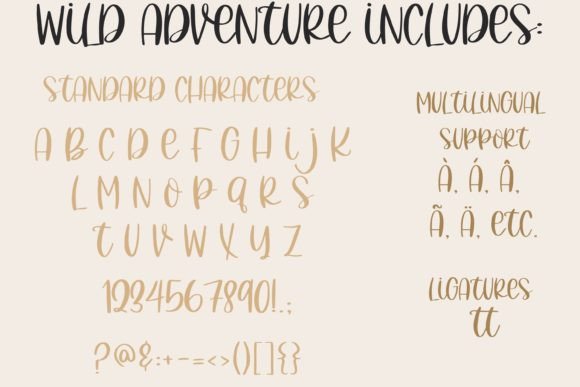 WILD ADVENTURE INCLUDES:
STANDARD CHARACTERS
A B C D E F G H I J K
L M N O P Q R S
T U V W X Y Z
1234567890!.;
?@&:+-=<>()[]{}
MULTILINGUAL
SUPPORT
À, Á, Â,
Ã, Ä, ETC.
LIGATURES
TT